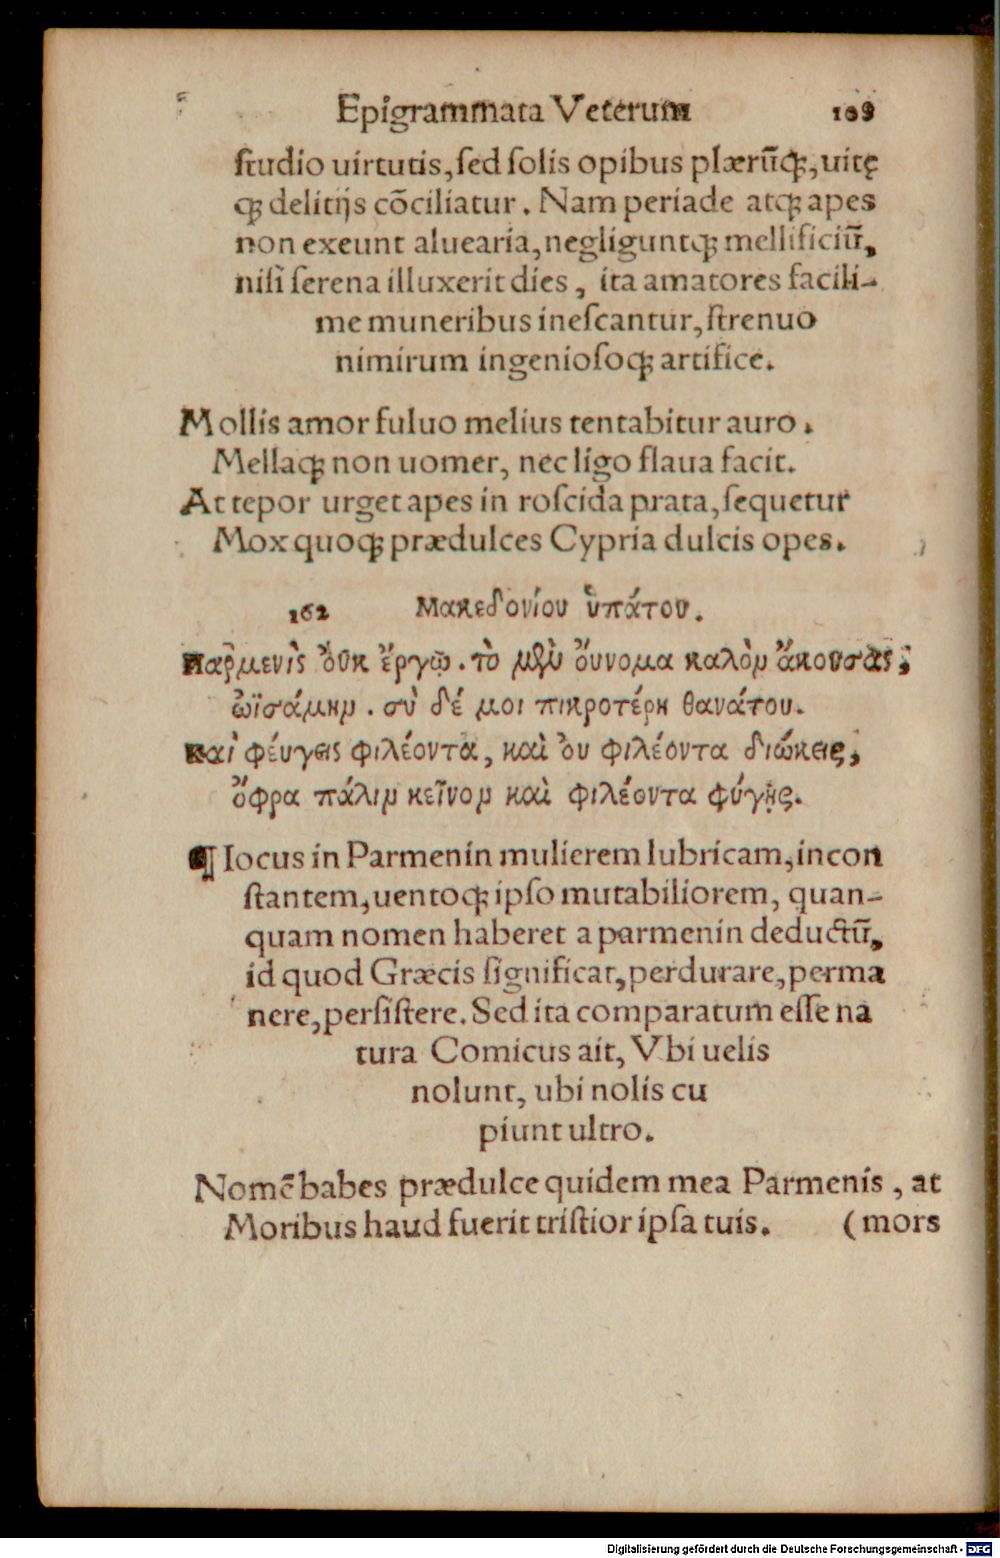 Epigrammata Veterum 109
studio uirtutis, sed solis opibus plærũq;, uitę
q; delitijs cõciliatur. Nam periade atq; apes
non exeunt aluearia, negliguntq; mellificiũ,
nisi serena illuxerit dies, ita amatores facili-
me muneribus inescantur, strenuo
nimirum ingeniosoq; artifice.
Mollis amor fuluo melius tentabitur auro.
Mellaq; non uomer, nec ligo flaua facit.
At tepor urget apes in roscida prata, sequetur
Mox quoq; prædulces Cypria dulcis opes.
162 Μακεδονίου ὑπάτου.
Παρμενὶς ὀυκ ἔργῳ. τὸ μὲν ὄυνομα καλὸν ἄκουσας;
ὠϊσάμην. σὺ δέ μοι πικροτέρη θανάτου.
καὶ φέυγεις φιλέοντα, καὶ ὀυ φιλέοντα διώκεις;
ὄφρα πάλιν κεῖνον καὶ φιλέοντα φύγῃς.
¶ Iocus in Parmenin mulierem lubricam, incon
stantem, uentoq; ipso mutabiliorem, quan-
quam nomen haberet a parmenin deductũ,
id quod Græcis significat, perdurare, perma
nere, persistere. Sed ita comparatum esse na
tura Comicus ait, Vbi uelis
nolunt, ubi nolis cu
piunt ultro.
Nomẽ babes prædulce quidem mea Parmenis, at
Moribus haud fuerit tristior ipsa tuis. (mors
Digitalisierung gefördert durch die Deutsche Forschungsgemeinschaft - DFG